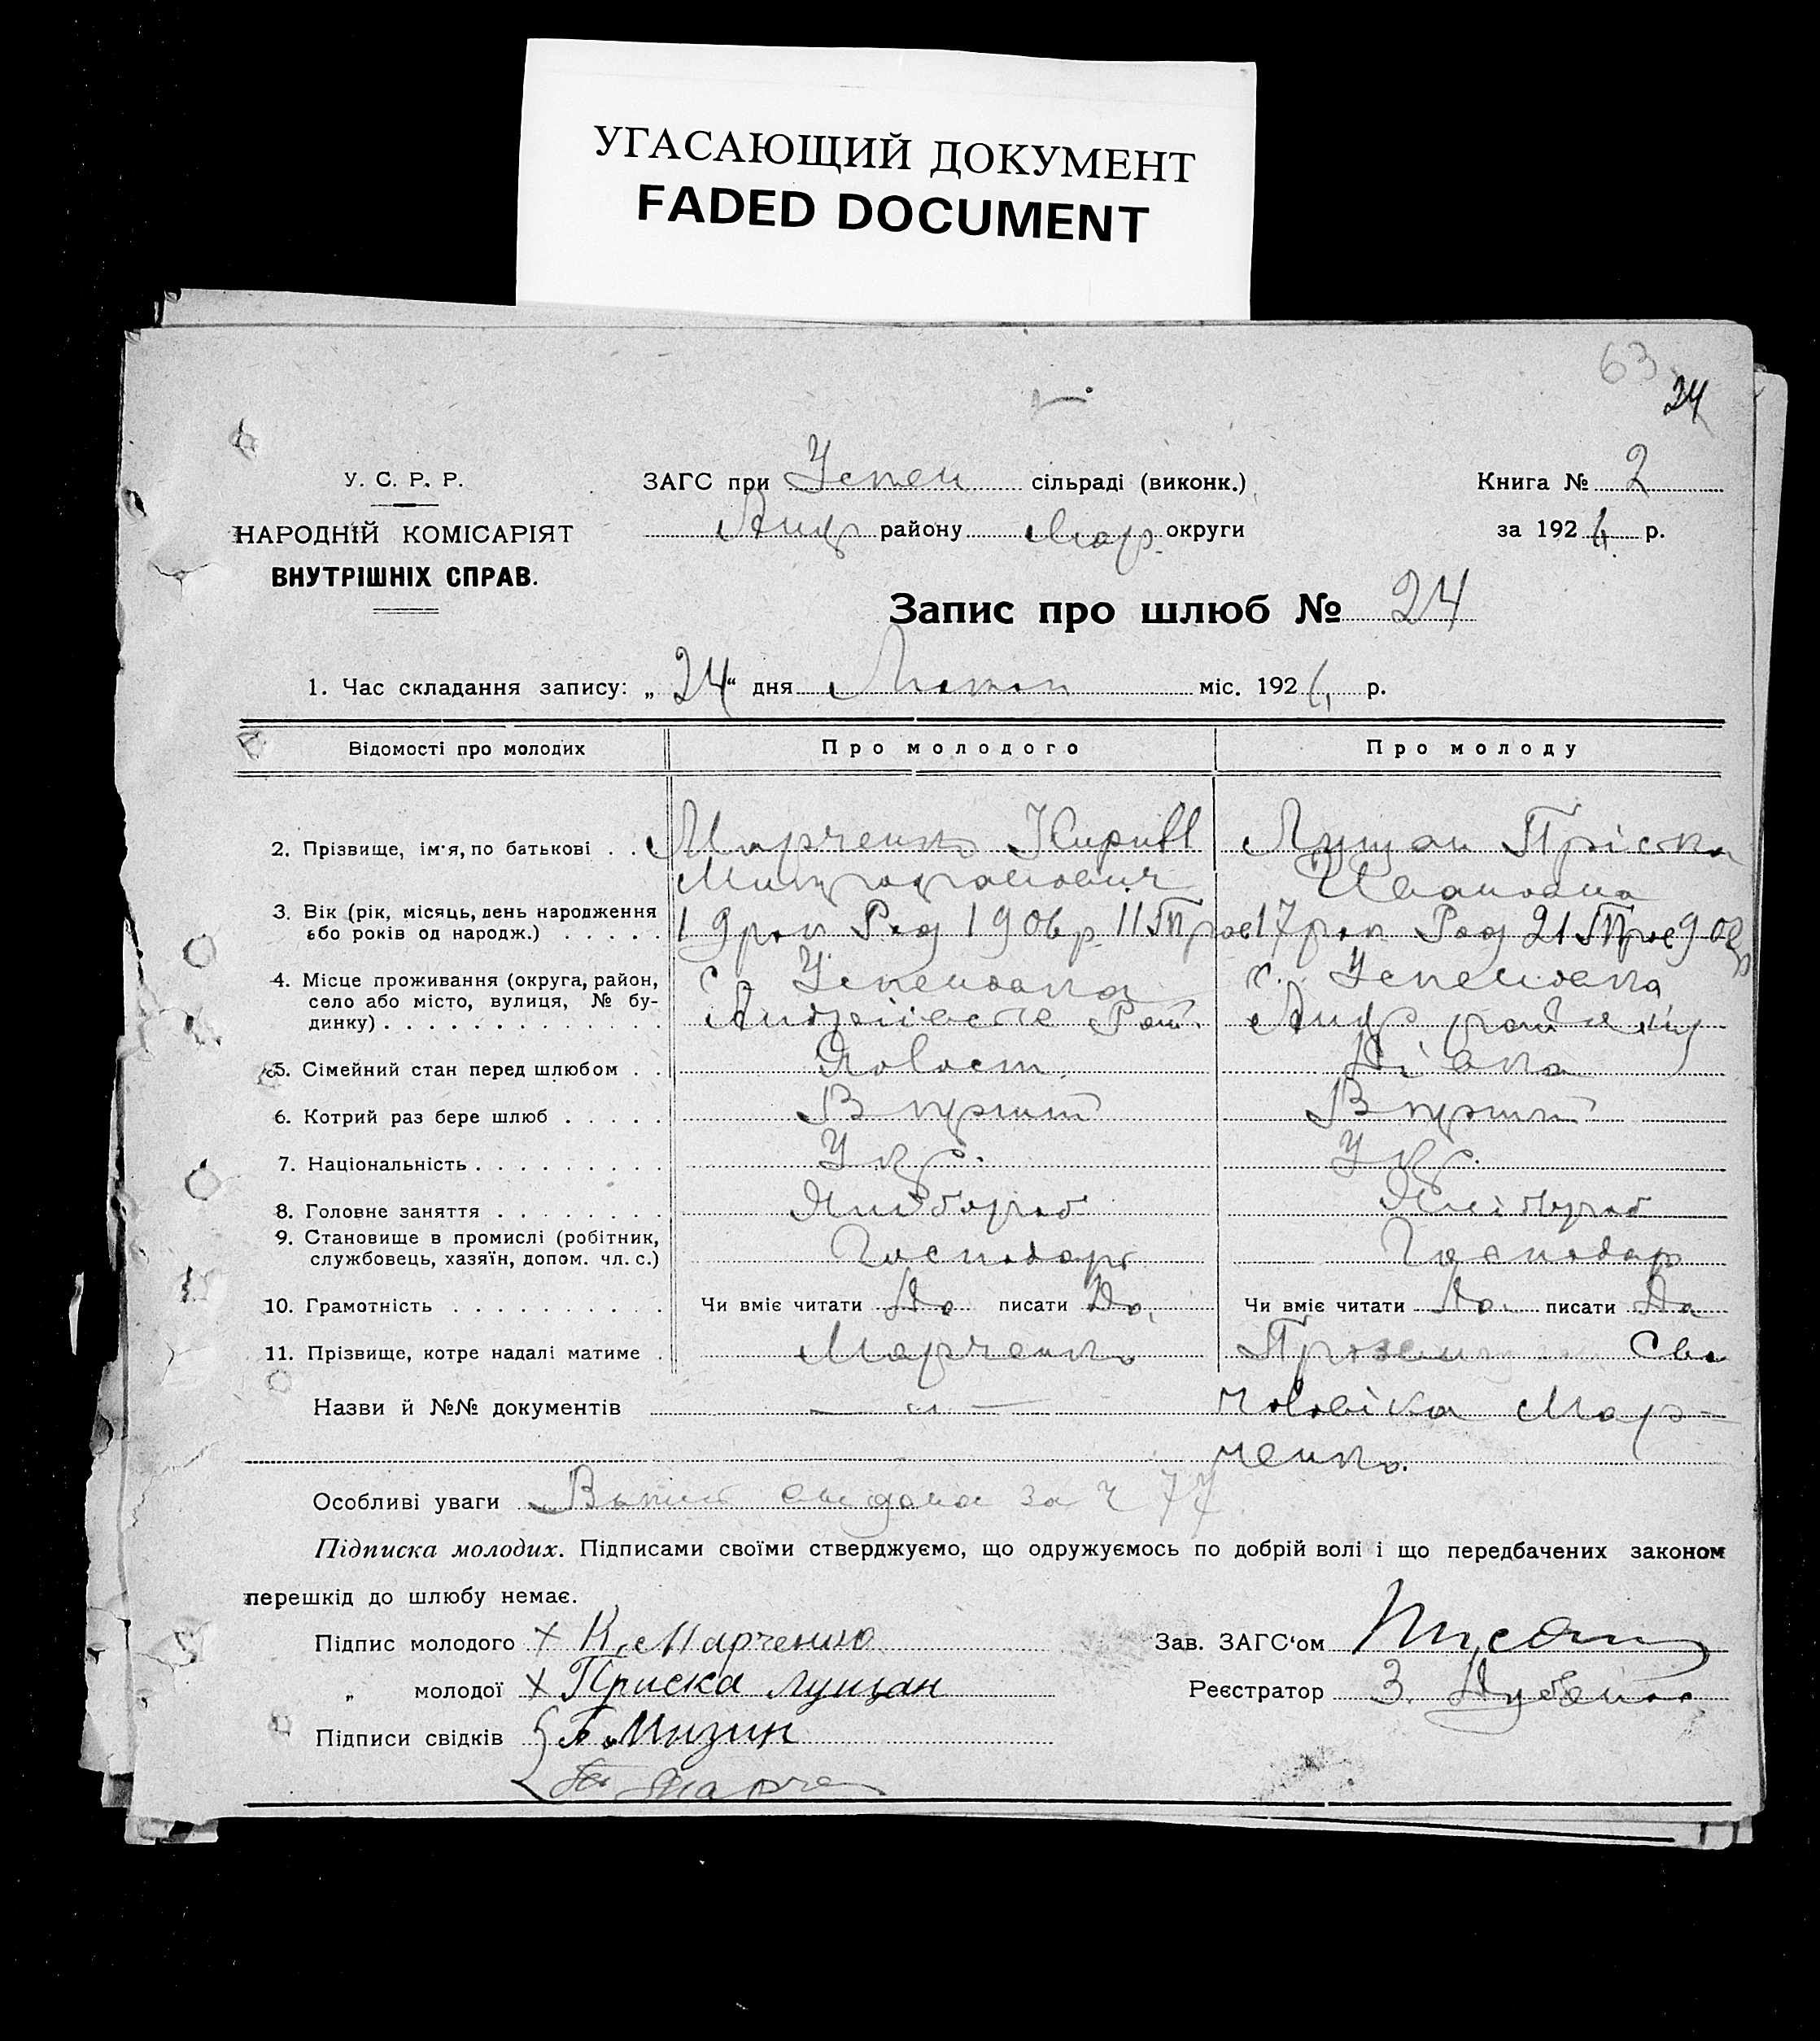 УГАСАЮЩИЙ ДОКУМЕНТ
FADED DOCUMENT
63
24
У. С. Р. Р.
НАРОДНІЙ КОМІСАРІЯТ
ВНУТРІШНІХ СПРАВ.
ЗАГС при Успен сільраді (виконк.)
Андр району Мар. округи
Книга № 2
за 1926 р.
Запис про шлюб № 24
1. Час складання запису: „24“ дня міс. 1926 р.
Відомості про молодих
Про молодого
Про молоду
2. Прізвище, ім'я, по батькові . . .
Марченко Кирил
Митрофанович
Лущан Пріска
Ивановна
3. Вік (рік, місяць, день народження
або років од народж.) . . . . .
19 рок Род 1906 р. 11
17 рок Род 21
4. Місце проживання (округа, район,
село або місто, вулиця, № бу-
динку) . . . . . . . . . . . . .
с. Успеновка
с. Успеновка
Андр
5. Сімейний стан перед шлюбом . .
Дівка
6. Котрий раз бере шлюб . . . . .
В перший
В перший
7. Національність . . . . . . . . .
Укр.
Укр.
8. Головне заняття . . . . . . . .
Хлібороб
Хлібороб
9. Становище в промислі (робітник,
службовець, хазяїн, допом. чл. с.)
Господарь
Господар
10. Грамотність . . . . . . . . . .
Чи вміє читати До писати До
Чи вміє читати До писати Да
11. Прізвище, котре надалі матиме .
Марченко
Сво
Назви й №№ документів — „ —
чоловіка Мар-
ченко.
Особливі уваги за ч 77
Підписка молодих. Підписами своїми стверджуємо, що одружуємось по добрій волі і що передбачених законом
перешкід до шлюбу немає.
Підпис молодого × К. Марченко
„ молодої × Приска Лущан
Підписи свідків Мизин
Зав. ЗАГС‘ом
Реєстратор З.